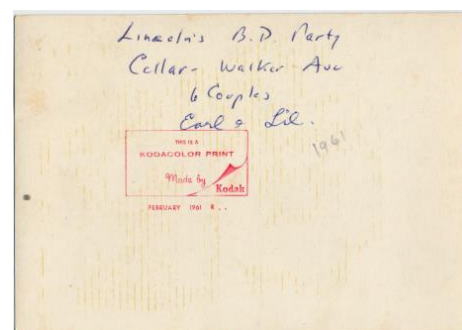 Lincoln's B.D. Party
Cellar - Walker Ave
6 Couples
Earl & Lil.
1961
THIS IS A
KODACOLOR PRINT
Made by
Kodak
FEBRUARY 1961 R . .